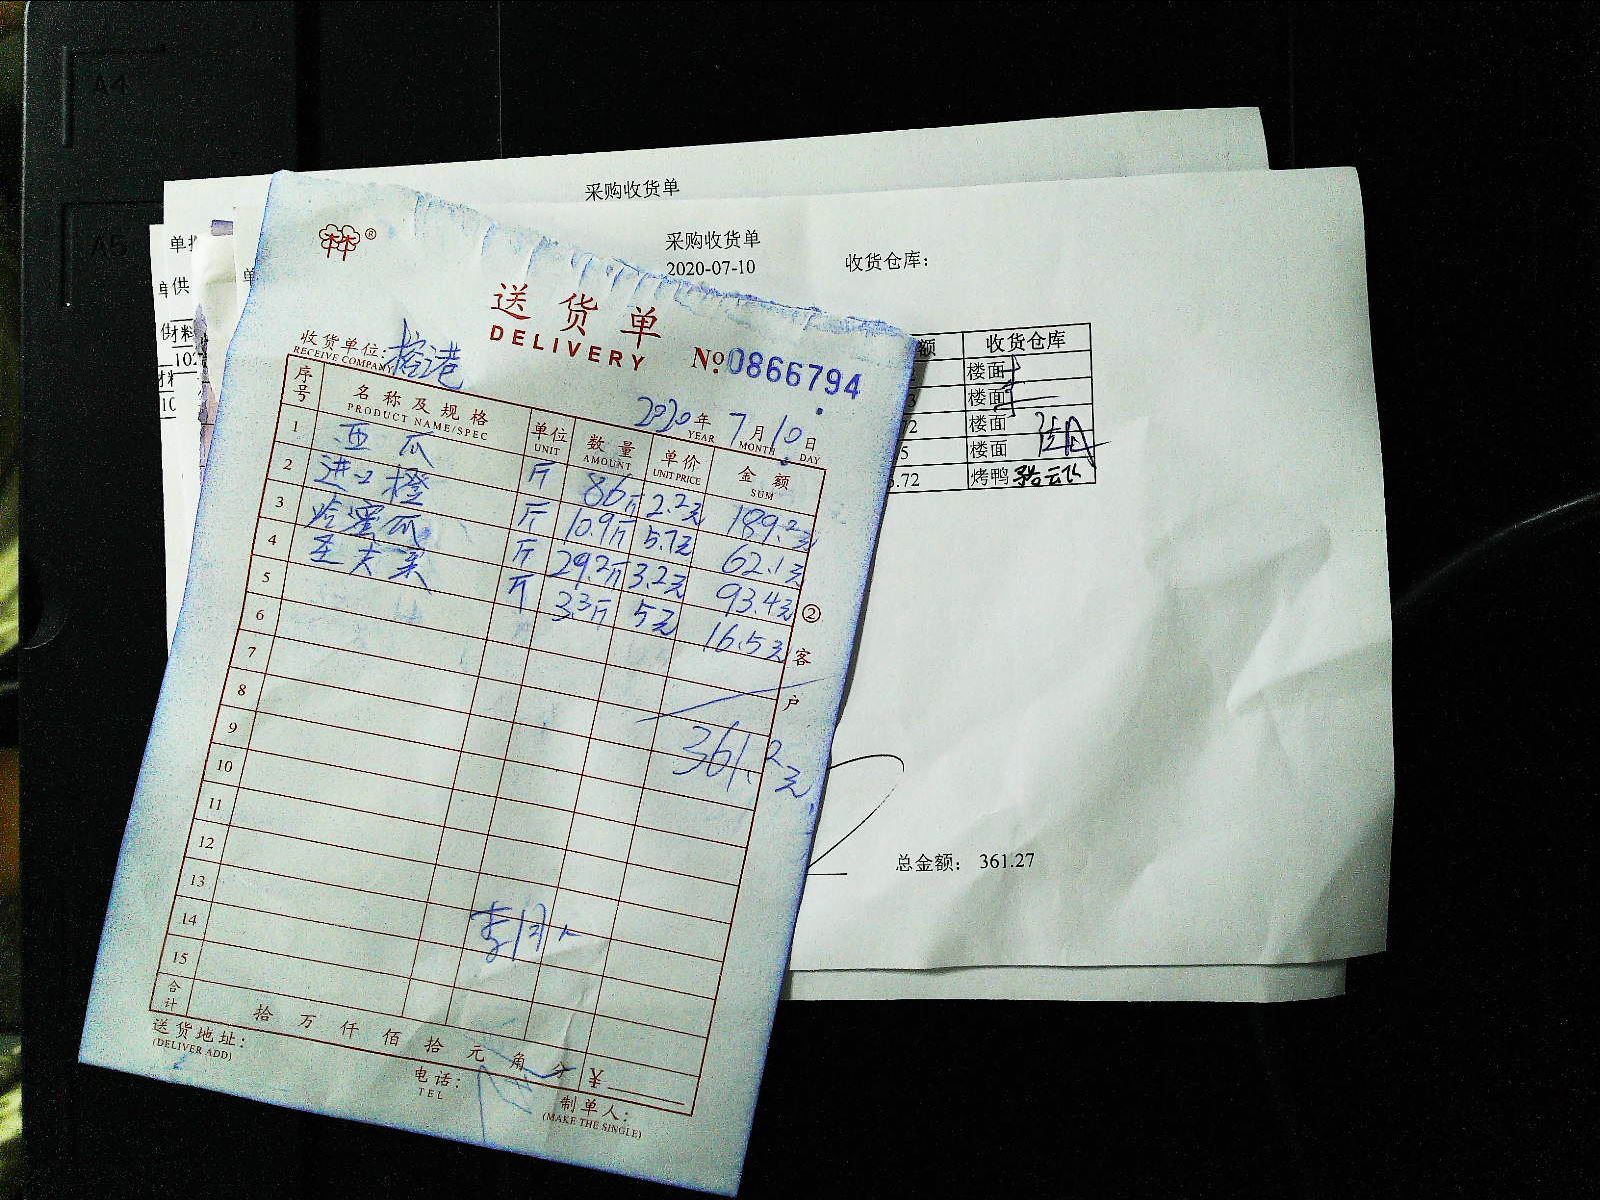 A4
A5
采购收货单
采购收货单
2020-07-10
收货仓库:
单
供
材料
额 收货仓库
楼面
楼面
72 楼面
5 楼面
.72 烤鸭
总金额: 361.27
林®
送货单
DELIVERY
№ 0866794
收货单位: 榕港
RECEIVE COMPANY
2020年 7月 10日
YEAR MONTH DAY
序号 名称及规格 单位 数量 单价 金额
PRODUCT NAME/SPEC UNIT AMOUNT UNIT PRICE SUM
1 西瓜 斤 86斤 2.2元 189.2元
2 进口橙 斤 10.9斤 5.7元 62.1元
3 哈蜜瓜 斤 29.2斤 3.2元 93.4元
4 圣夫果 斤 3.3斤 5元 16.5元
5
6
7
8
9 361.2元
10
11
12
13
14
15
合计 拾 万 仟 佰 拾 元 角 分 ¥
②客户
送货地址:
(DELIVER ADD)
电话:
TEL
制单人:
(MAKE THE SINGLE)